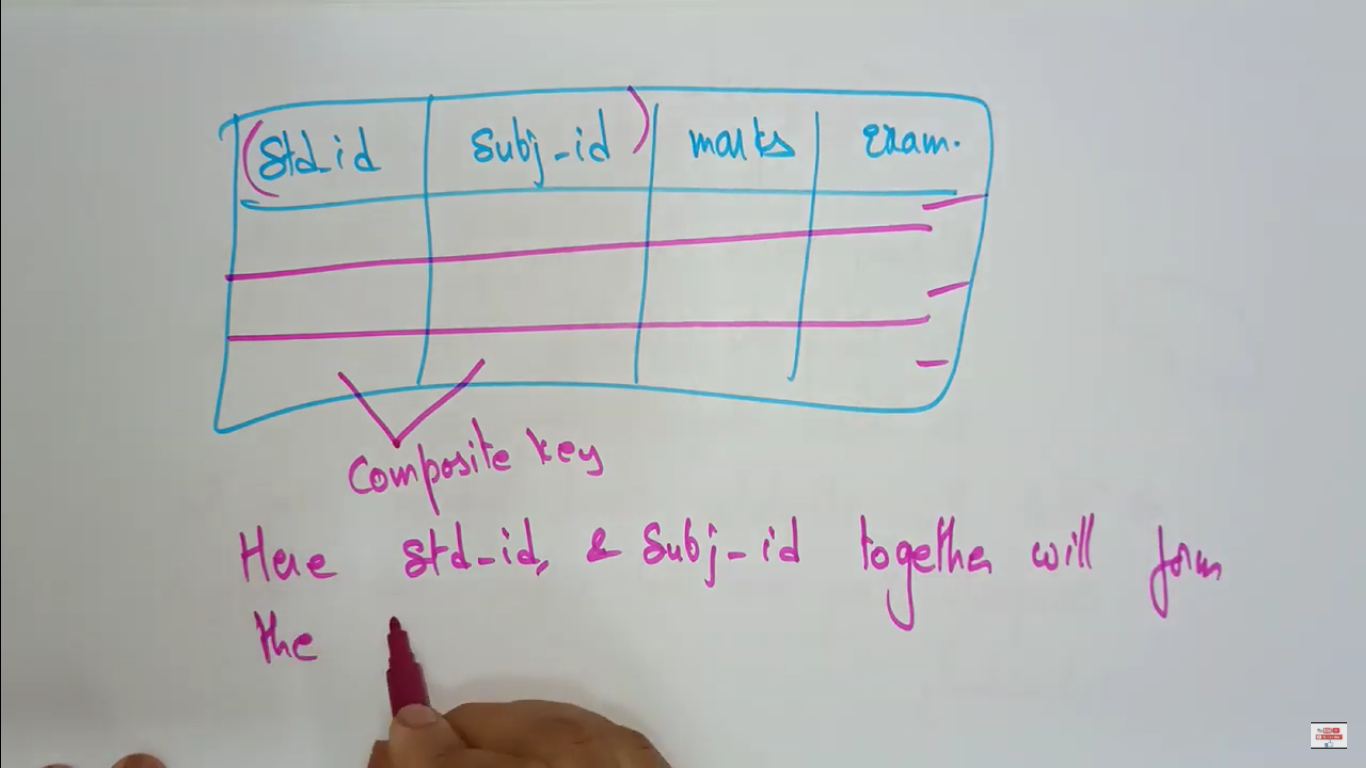 (Std_id Subj_id) marks Exam.
Composite key
Here Std_id, & Subj_id together will form
the